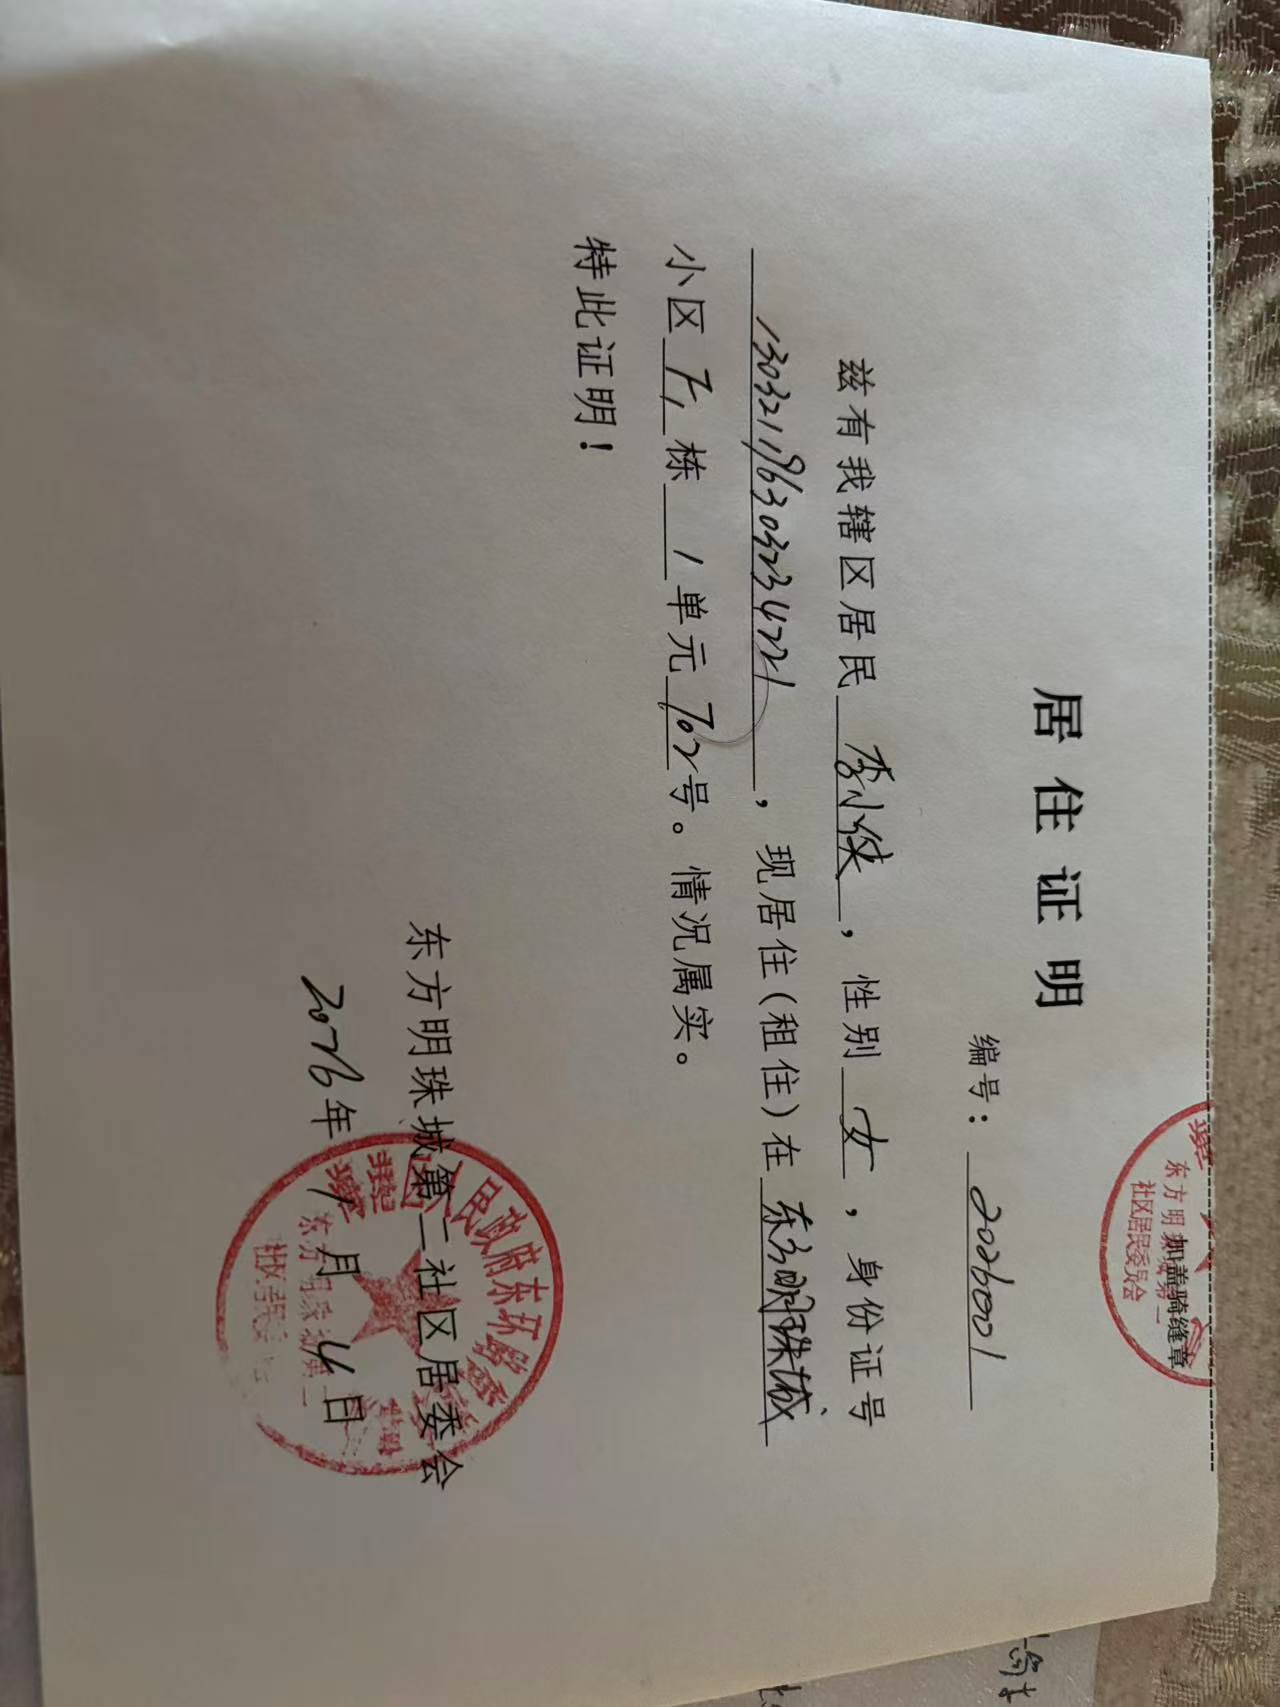 居住证明
编号：2026001
兹有我辖区居民 李小侠，性别 女，身份证号
130321196303234721，现居住(租住)在 东方明珠城
小区 71 栋 1 单元 702 号。情况属实。
特此证明！
东方明珠城第二社区居委会
2026年1月4日
加盖骑缝章
东方明珠城第二
社区居民委员会
人民政府东环路